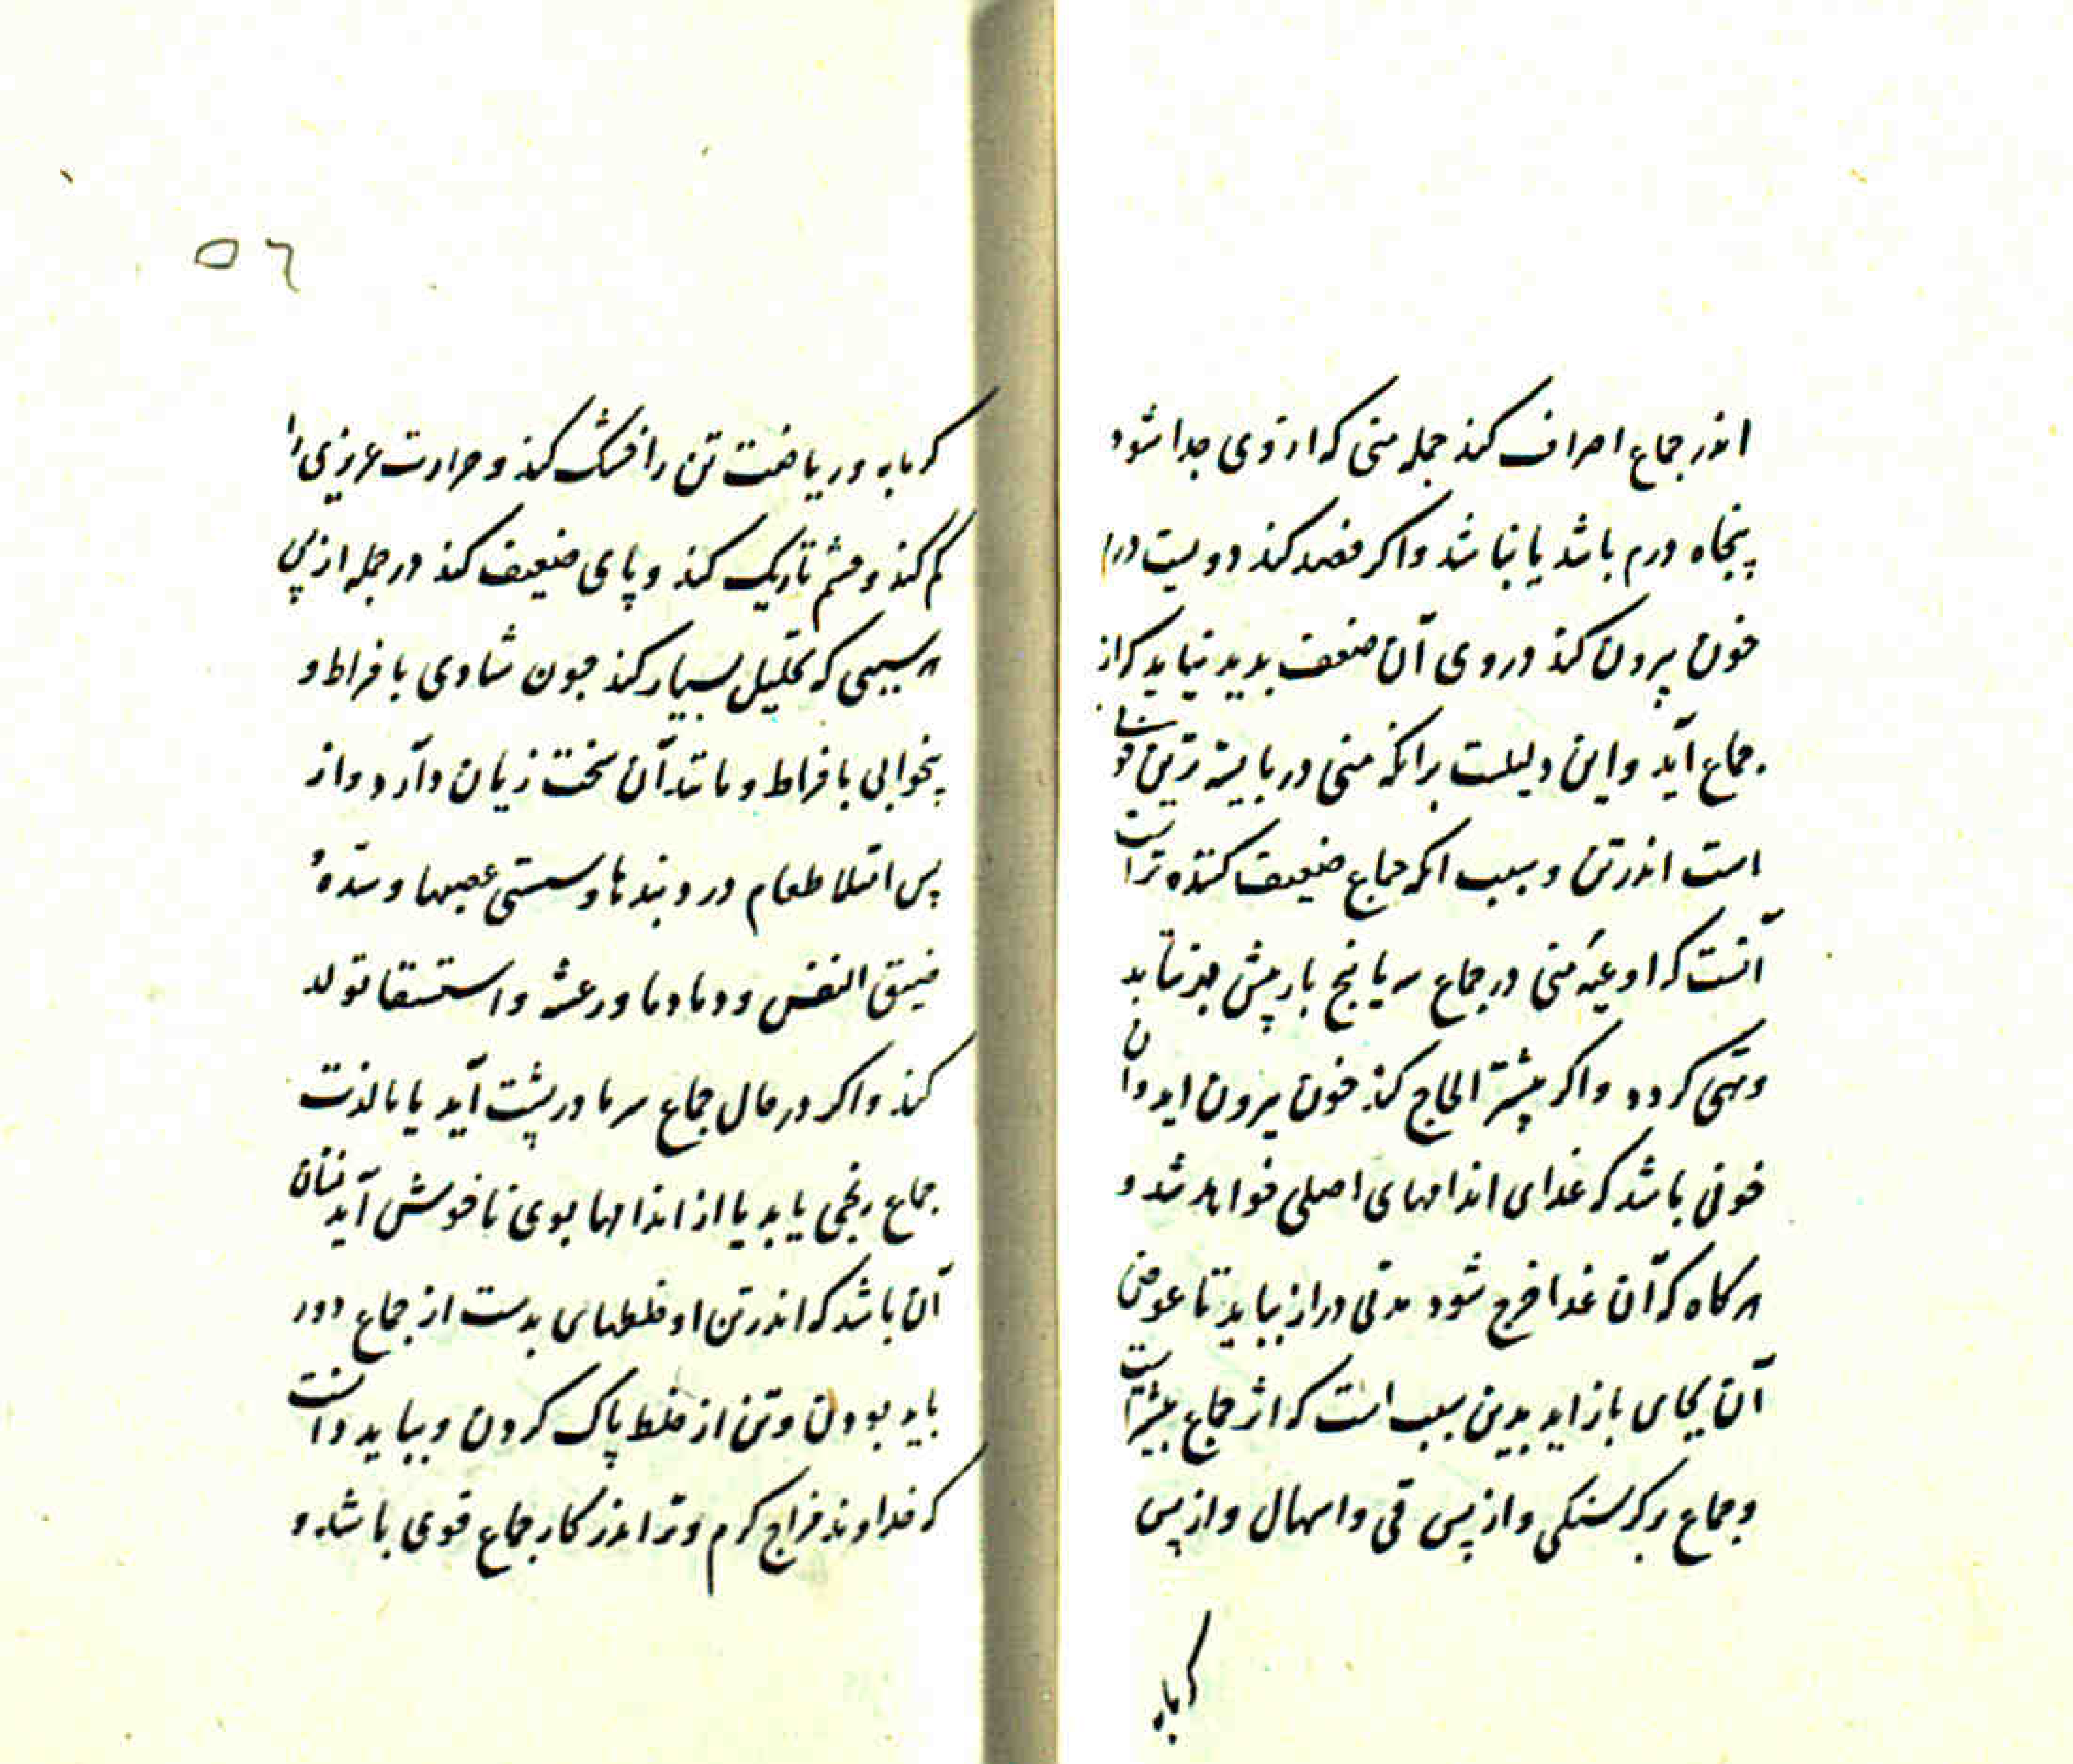 اندر جماع اسراف کند جمله منی که از وی جدا شود
پنجاه درم باشد یا نباشد واکر فصد کند دویست درم
خون بیرون کند در وی آن ضعف بدید نیاید که از
جماع آید و این دلیلست برانکه منی دربایسته ترین
است اندر تن و سبب انکه جماع ضعیف کننده تر است
آنست که اوعیه منی در جماع سه یا پنج بار بیش
وتهی کردد واکر بیشتر الحاح کند خون بیرون اید وان
خونی باشد که غذای اندامهای اصلی خواهد شد و
هرکاه که آن غذا خرج شود مدتی دراز بباید تا عوض
آن بجای باز اید بدین سبب است که اثر جماع بیشتر است
و جماع بر کرسنکی و از پس قی و اسهال و از پس
کرمابه
٥٦
کرمابه و ریاضت تن را خشک کند و حرارت غریزی را
کم کند و چشم تاریک کند و پای ضعیف کند در جمله از پس
هر سببی که تحلیل بسیار کند جون شادی بافراط و
بیخوابی بافراط و مانند آن سخت زیان دارد و از
پس امتلا طعام درد بندها و سستی عصبها و سده و
ضیق النفس و دمادما و رعشه و استسقا تولد
کند واکر در حال جماع سرما در پشت آید یا با لذت
جماع رنجی یابد یا از اندامها بوی ناخوش آید نشان
آن باشد که اندر تن او خلطهای بدست از جماع دور
باید بودن و تن از خلط پاک کردن و بباید دانست
که خداوند مزاج کرم و تر اندر کار جماع قوی باشد و